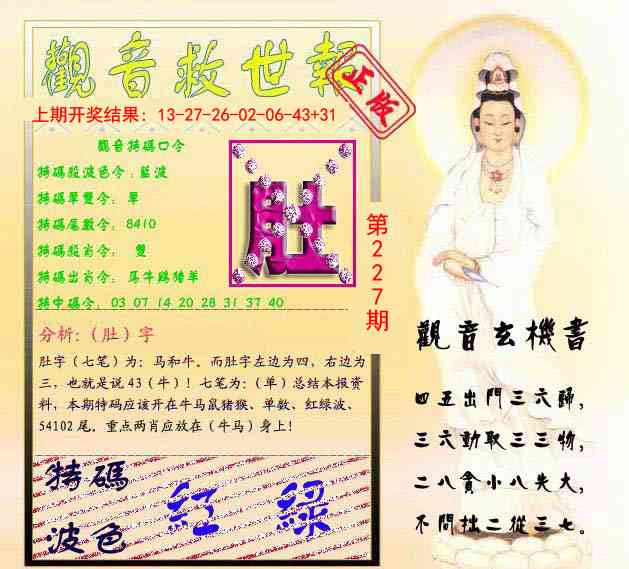 觀音救世報
正版
上期开奖结果：13-27-26-02-06-43+31
觀音特碼口令
特碼段波色令：藍波
特碼單雙令：單
特碼尾數令：8410
特碼段肖令： 雙
特碼出肖令：馬牛鷄猪羊
特中碼令：03 07 14 20 28 31 37 40
肚
第227期
分析:（肚）字
肚字（七笔）为：马和牛。而肚字左边为四，右边为
三，也就是说 43（牛）！七笔为：（单）总结本报资
料，本期特码应该开在牛马鼠猪猴、单数、红绿波、
54102 尾。重点两肖应放在（牛马）身上！
特碼
波色
紅 綠
觀音玄機書
四五出門三六歸，
三六勤取三三物，
二八貪小八失大，
不問拙二從三七。